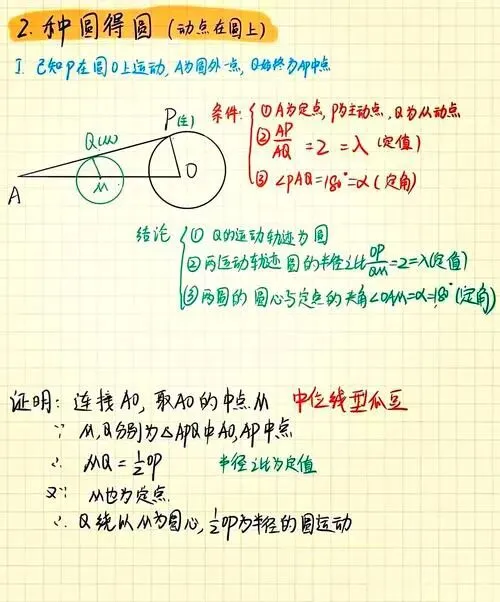 2. 种圆得圆 (动点在圆上)
I. 已知P在圆O上运动, A为圆外一点, Q始终为AP中点
P(主)
Q(从)
M
O
A
条件: ① A为定点, P为主动点, Q为从动点
② AP/AQ = 2 = λ (定值)
③ ∠PAQ=180°=α (定角)
结论 ① Q的运动轨迹为圆
② 两运动轨迹圆的半径之比OP/QM=2=λ(定值)
③ 两圆的圆心与定点的夹角∠OAM=α=180°(定角)
证明: 连接AO, 取AO的中点M 中位线型瓜豆
∵ M,Q分别为△APQ中AO,AP中点
∴ MQ=½OP 半径之比为定值
又∵ M也为定点
∴ Q绕以M为圆心,½OP为半径的圆运动